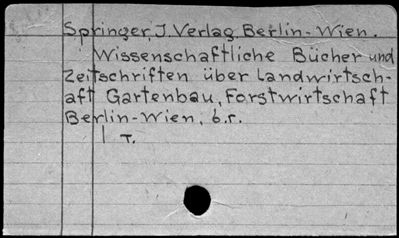 Springer, J. Verlag Berlin-Wien.
Wissenschaftliche Bücher und
Zeitschriften über Landwirtsch-
aft Gartenbau, Forstwirtschaft
Berlin-Wien, o.r.
1 T.